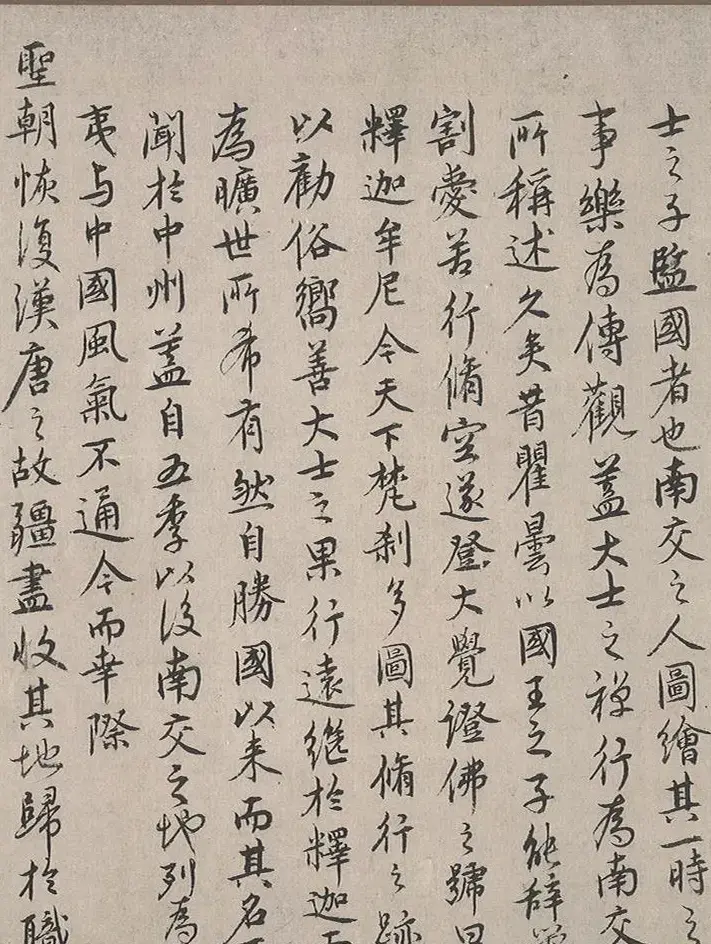 士之子監國者也南交之人圖繪其一時之
事樂為傳觀蓋大士之禅行為南交
所稱述久矣昔瞿曇以國王之子能辞
割愛苦行脩空遂登大覺證佛之號曰
釋迦牟尼今天下梵刹多圖其脩行之跡
以勸俗嚮善大士之果行遠繼於釋迦
為曠世所希有然自勝國以来而其名
聞於中州蓋自五季以後南交之地列為
夷与中國風氣不通今而幸際
聖朝恢復漢唐之故疆盡收其地歸於職